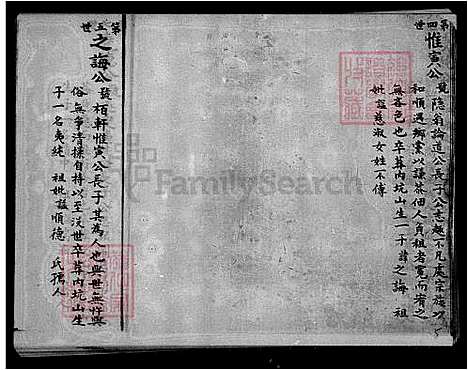 第四世
惟寅公
號隐翁諭道公長子公志趣不凡處宗族以
和順遇鄉黨以謙恭佃人負租者寬而宥之
無吝色也卒葬内坑山生一子諱之誨 祖
妣諡慈淑女姓不傳
第五世
之誨公
號栢軒惟寅公長子其為人也與世無忤與
俗無爭清操自持以至没世卒葬内坑山生
子一名夷純 祖妣諡順德 氏孺人
FamilySearch
5